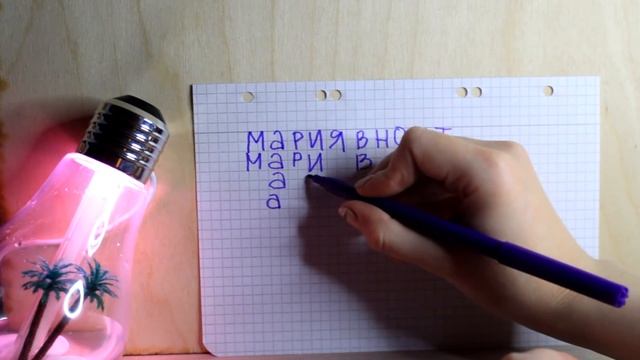 мария в но
мари в
а
а